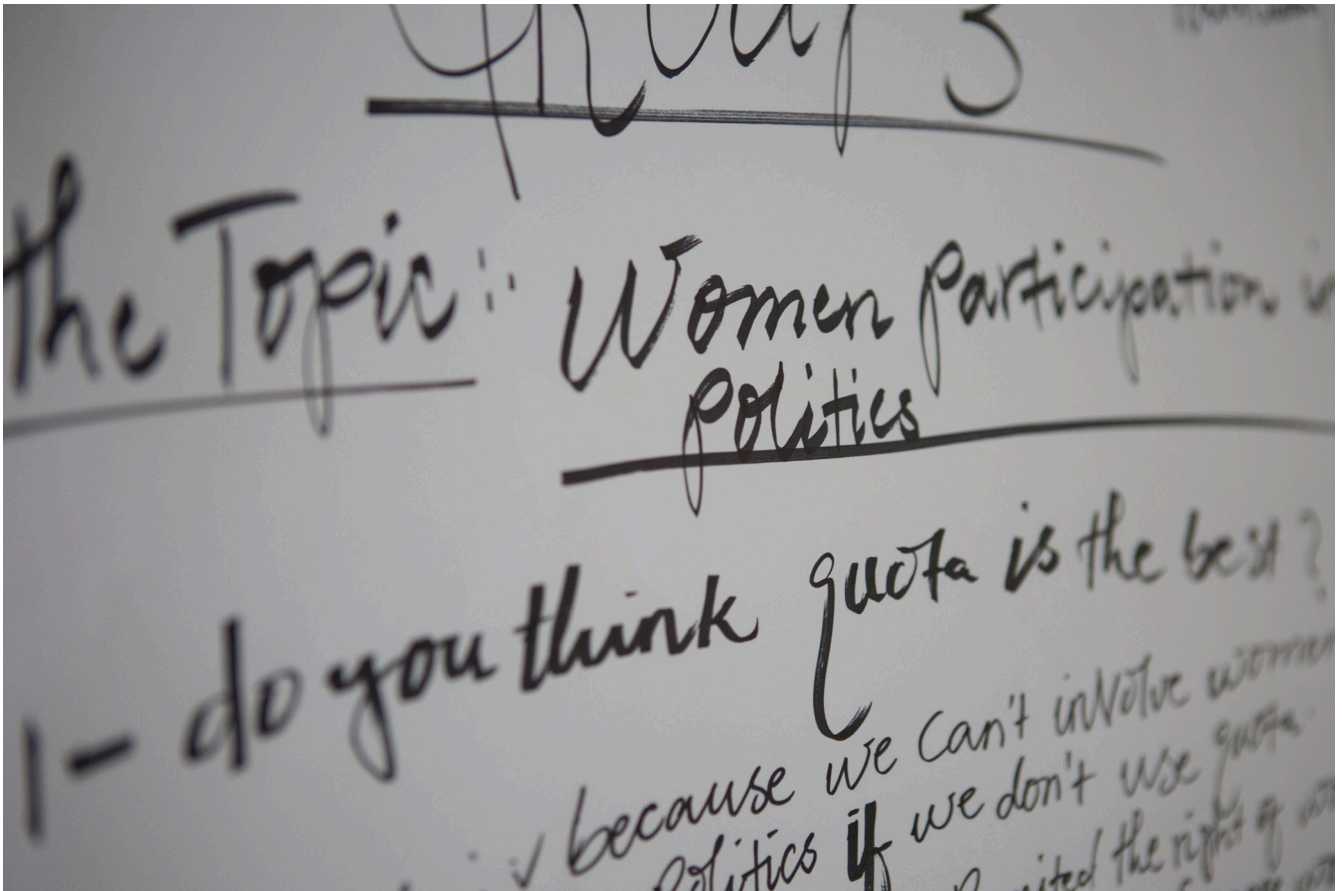 3
the Topic: Women Participation in
Politics
1- do you think quota is the best?
because we can't involve women
Politics if we don't use quota
the right of